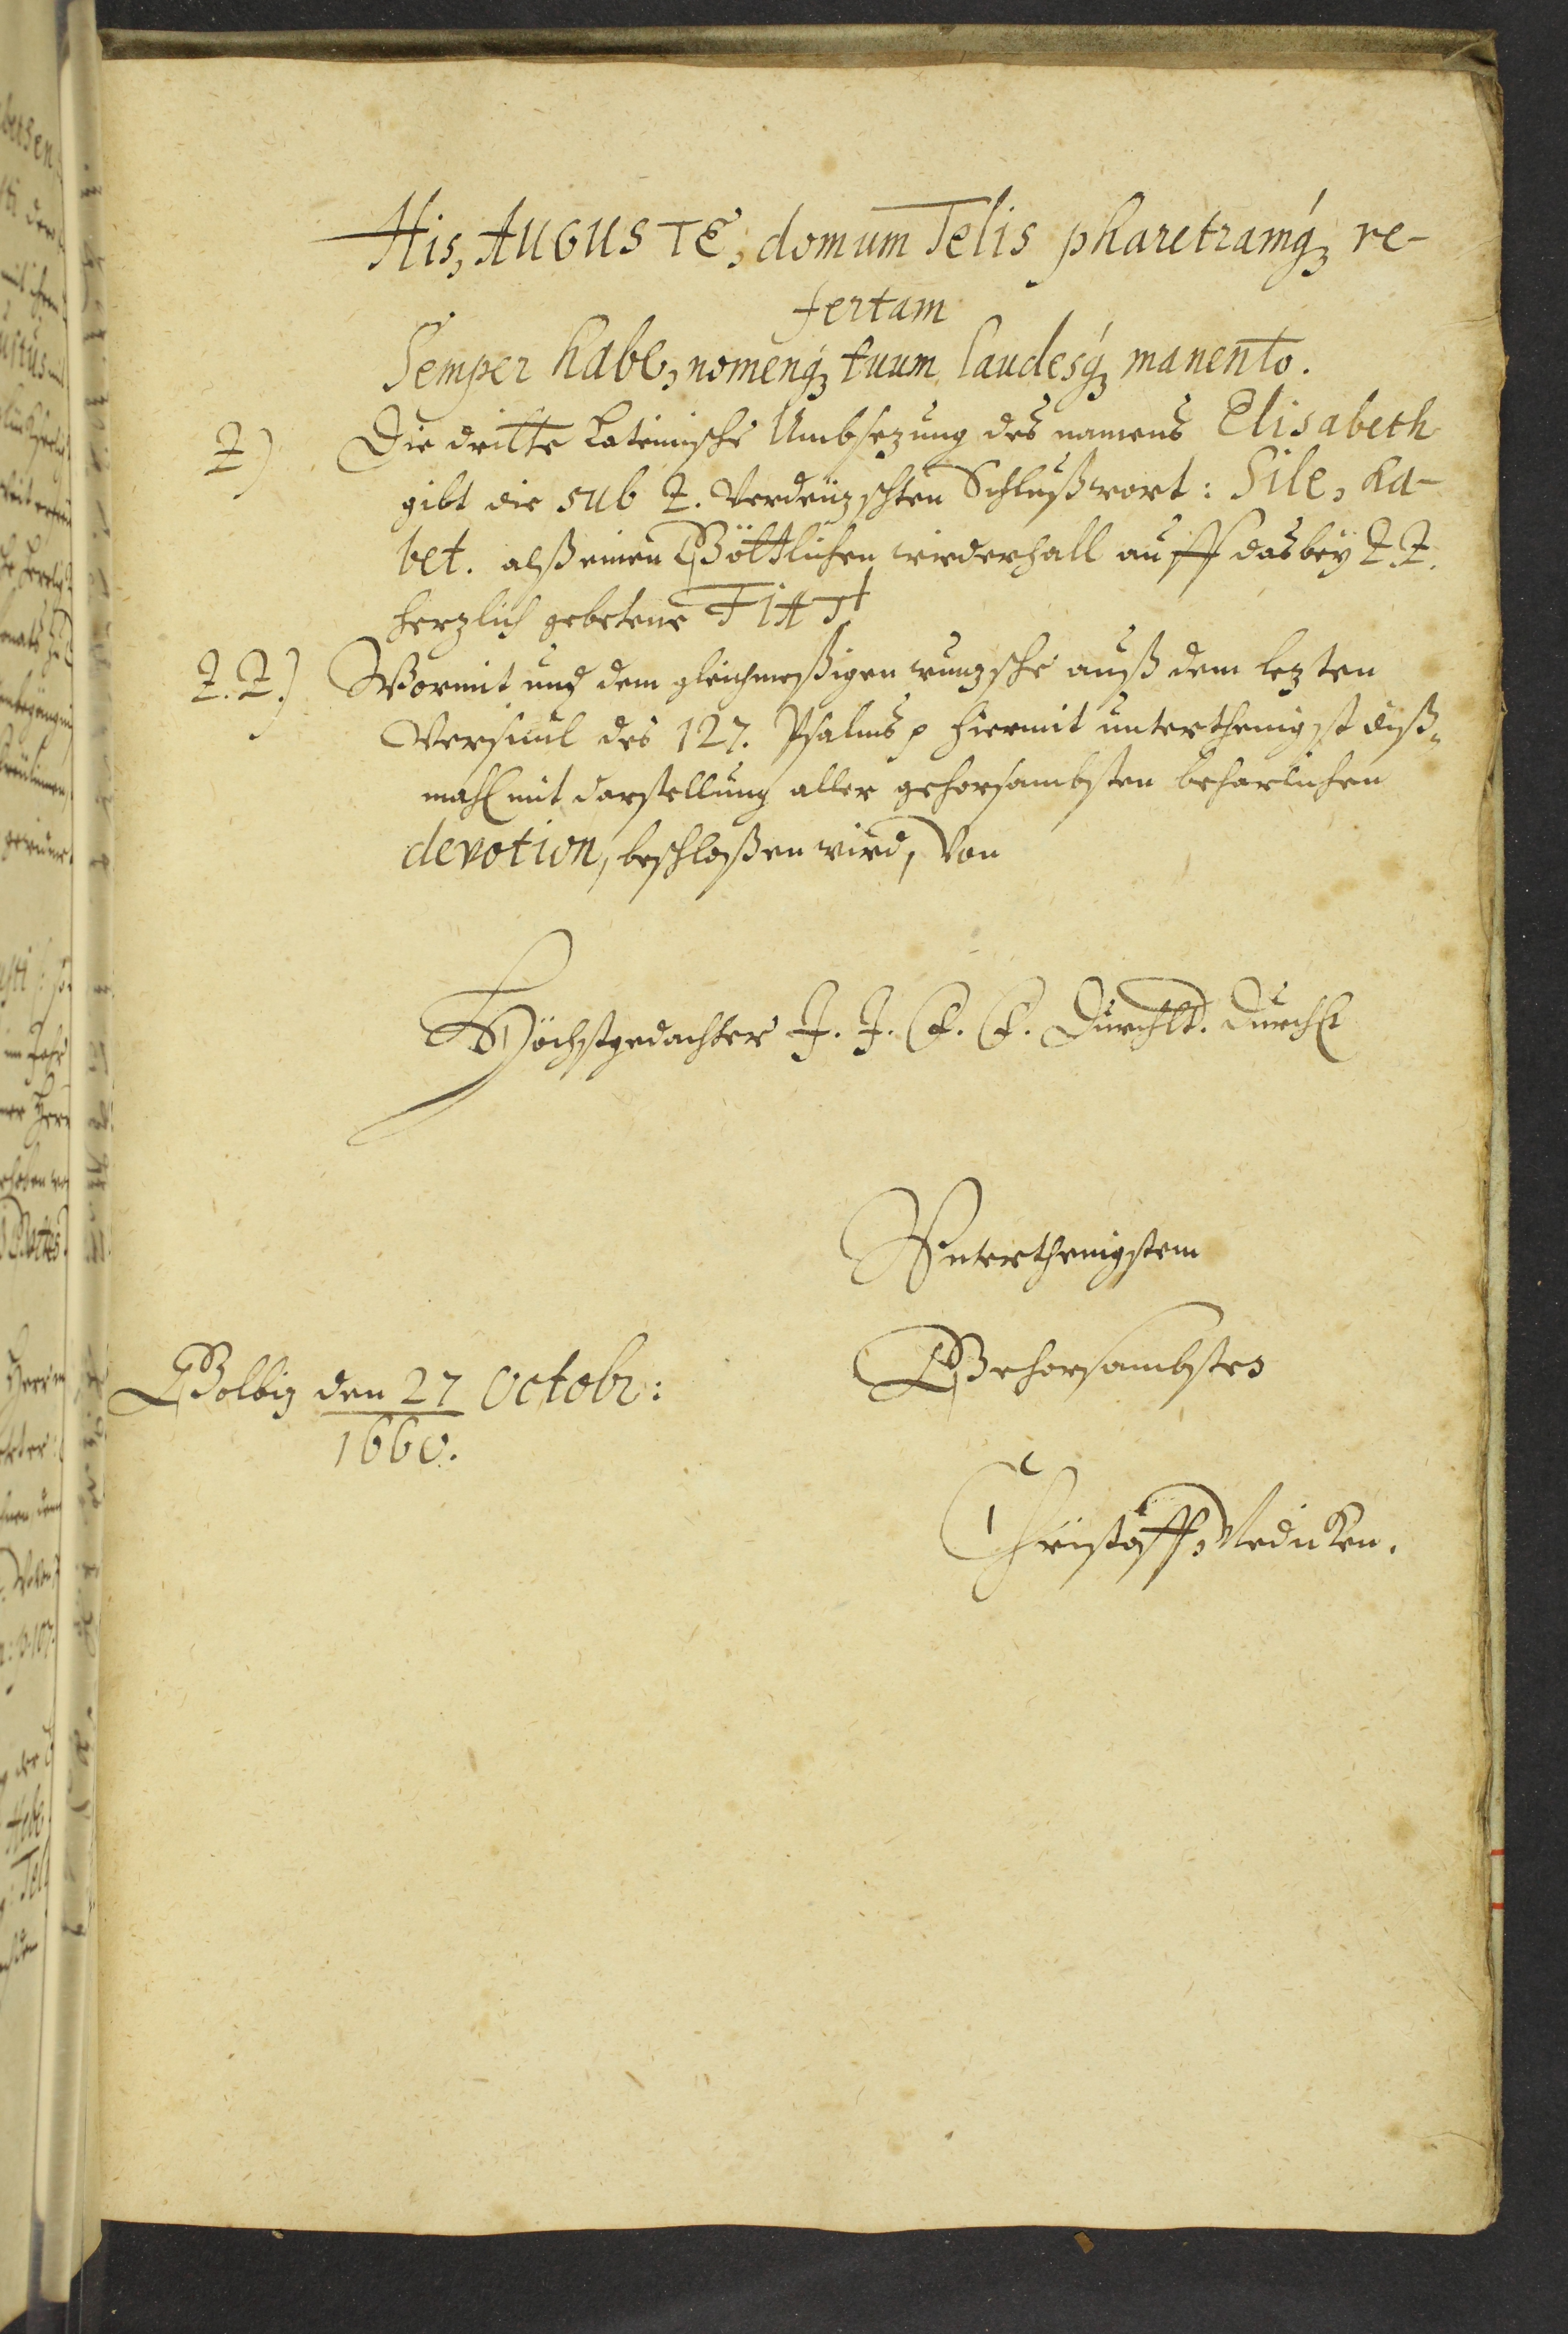 His, AUGUSTE, domum Telis pharetramq́ꝫ re-
fertam
Semper habe, nomenq́ꝫ tuum laudesq́ꝫ manento.
Z) Die dritte Lateinische Umbsezung des namens Elisabeth
gibt die sub Z. Verdeüzschten Schlußwort: Sile, ha-
bet. alß einen Göttlichen wiederhall auff das bey Z.Z.
herzlich gebetene FIAT!
Z.Z.) Wormit und dem gleichmeßigen wunzsche auß dem lezten
Versicul des 127. Psalms p hiermit unterthenigst diß„
mahl mit darstellung aller gehorsambsten beharlichen
devotion, beschloßen wird, Von
Höchstgedachter J. J. F. F. Durchld. Durchl
Unterthenigstem
Gehorsambstes
Golbiz den 27 Octobr:
1660.
Christoff